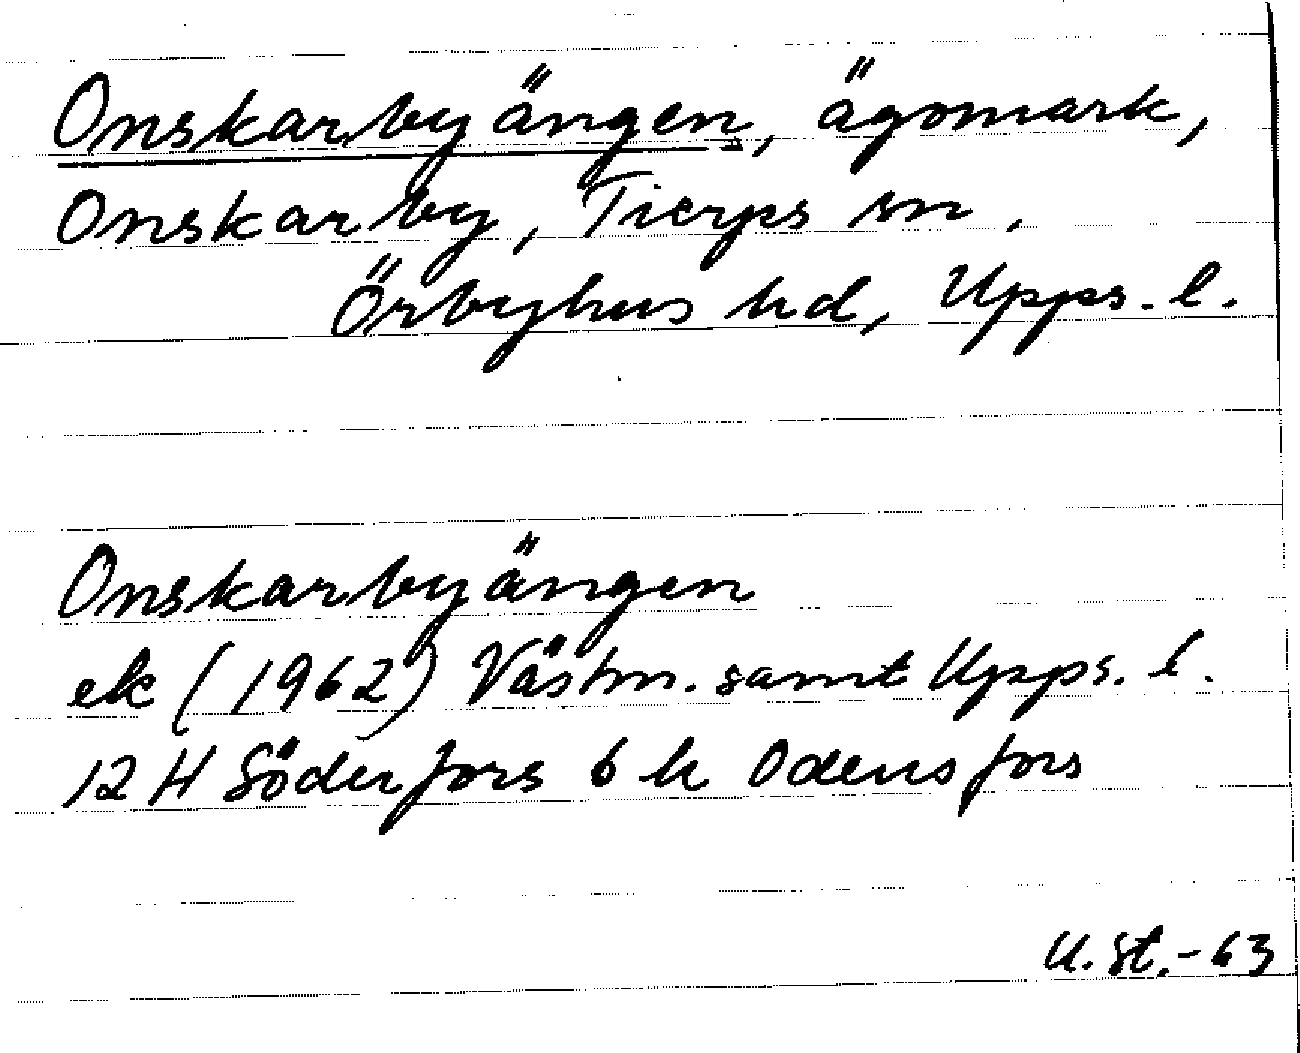 Onskarbyängen, ägomark,
Onskarby, Tierps sn,
Örbyhus hd, Upps. l.
Onskarbyängen
ek (1962) Västm. samt Upps. l.
12 H Söderfors 6 h Odensfors
U. St. -63